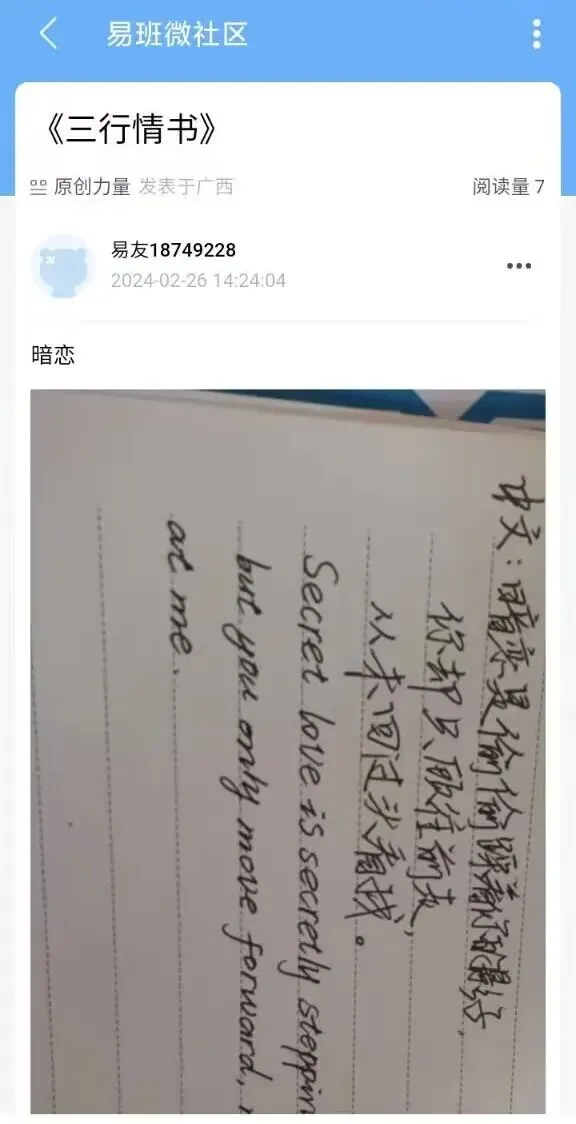 易班微社区
《三行情书》
原创力量 发表于广西
阅读量 7
易友18749228
2024-02-26 14:24:04
暗恋
中文：暗恋是偷偷踩着你的影子，
你却只顾往前走，
从未回过头看我。
Secret love is secretly steppin
but you only move forward,
at me.